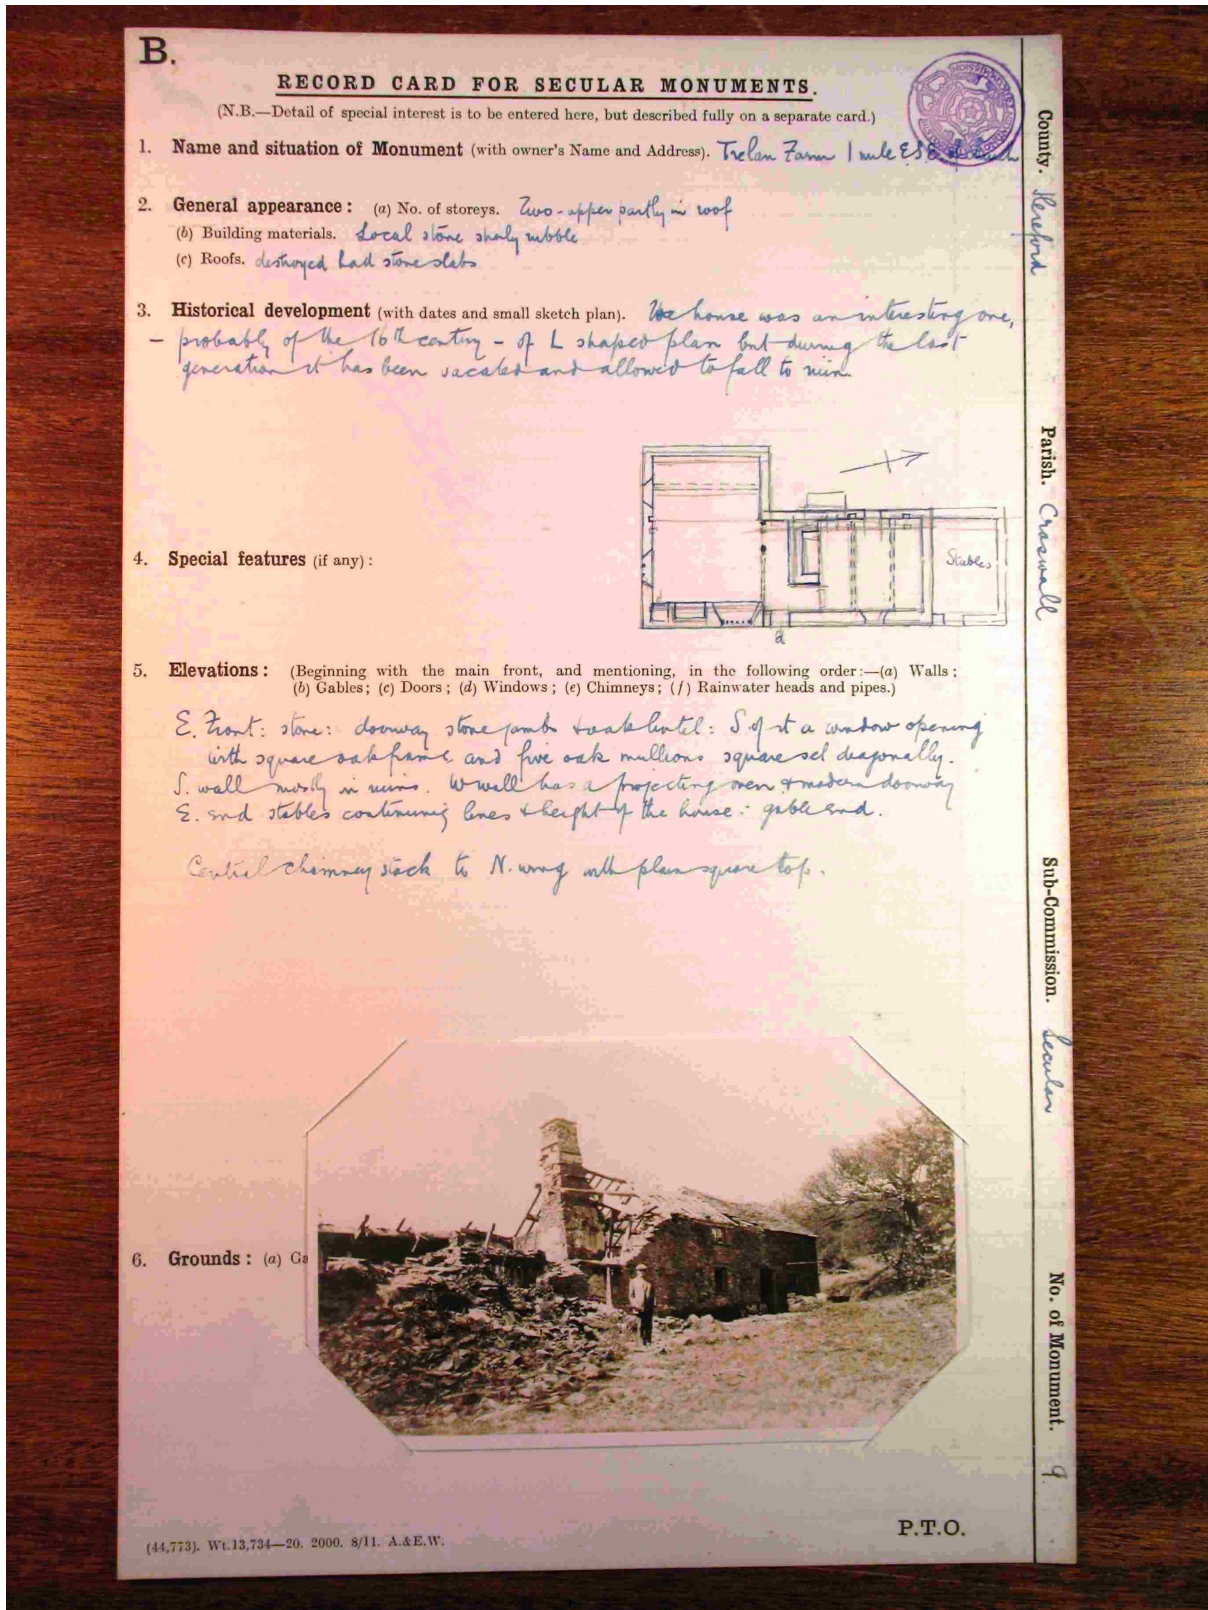 B.
RECORD CARD FOR SECULAR MONUMENTS.
(N.B.—Detail of special interest is to be entered here, but described fully on a separate card.)
1. Name and situation of Monument (with owner's Name and Address). Trelan Farm 1 mile E.S.E. of
2. General appearance: (a) No. of storeys. Two - upper partly in roof
(b) Building materials. Local stone shaly rubble
(c) Roofs. destroyed had stone slabs
3. Historical development (with dates and small sketch plan). The house was an interesting one,
– probably of the 16th century – of L shaped plan but during the last
generation it has been vacated and allowed to fall to ruin
Stables
d
4. Special features (if any):
5. Elevations: (Beginning with the main front, and mentioning, in the following order:—(a) Walls;
(b) Gables; (c) Doors; (d) Windows; (e) Chimneys; (f) Rainwater heads and pipes.)
E. Front: stone: doorway stone jambs & oak lintel: S of it a window opening
with square oak frame and five oak mullions square set diagonally.
S. wall mostly in ruins. W wall has a projecting oven & modern doorway
E. end stables continuing lines & height of the house: gable end.
Central chimney stack to N. wing with plain square top.
6. Grounds: (a) Ga
P.T.O.
(44,773). Wt.13,734—20. 2000. 8/11. A.&E.W.
County. Hereford
Parish. Craswall
Sub-Commission. Secular
No. of Monument. 9